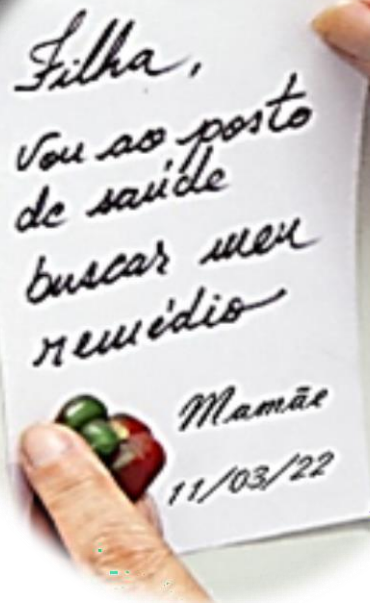 Filha,
vou ao posto
de saúde
buscar meu
remédio
Mamãe
11/03/22